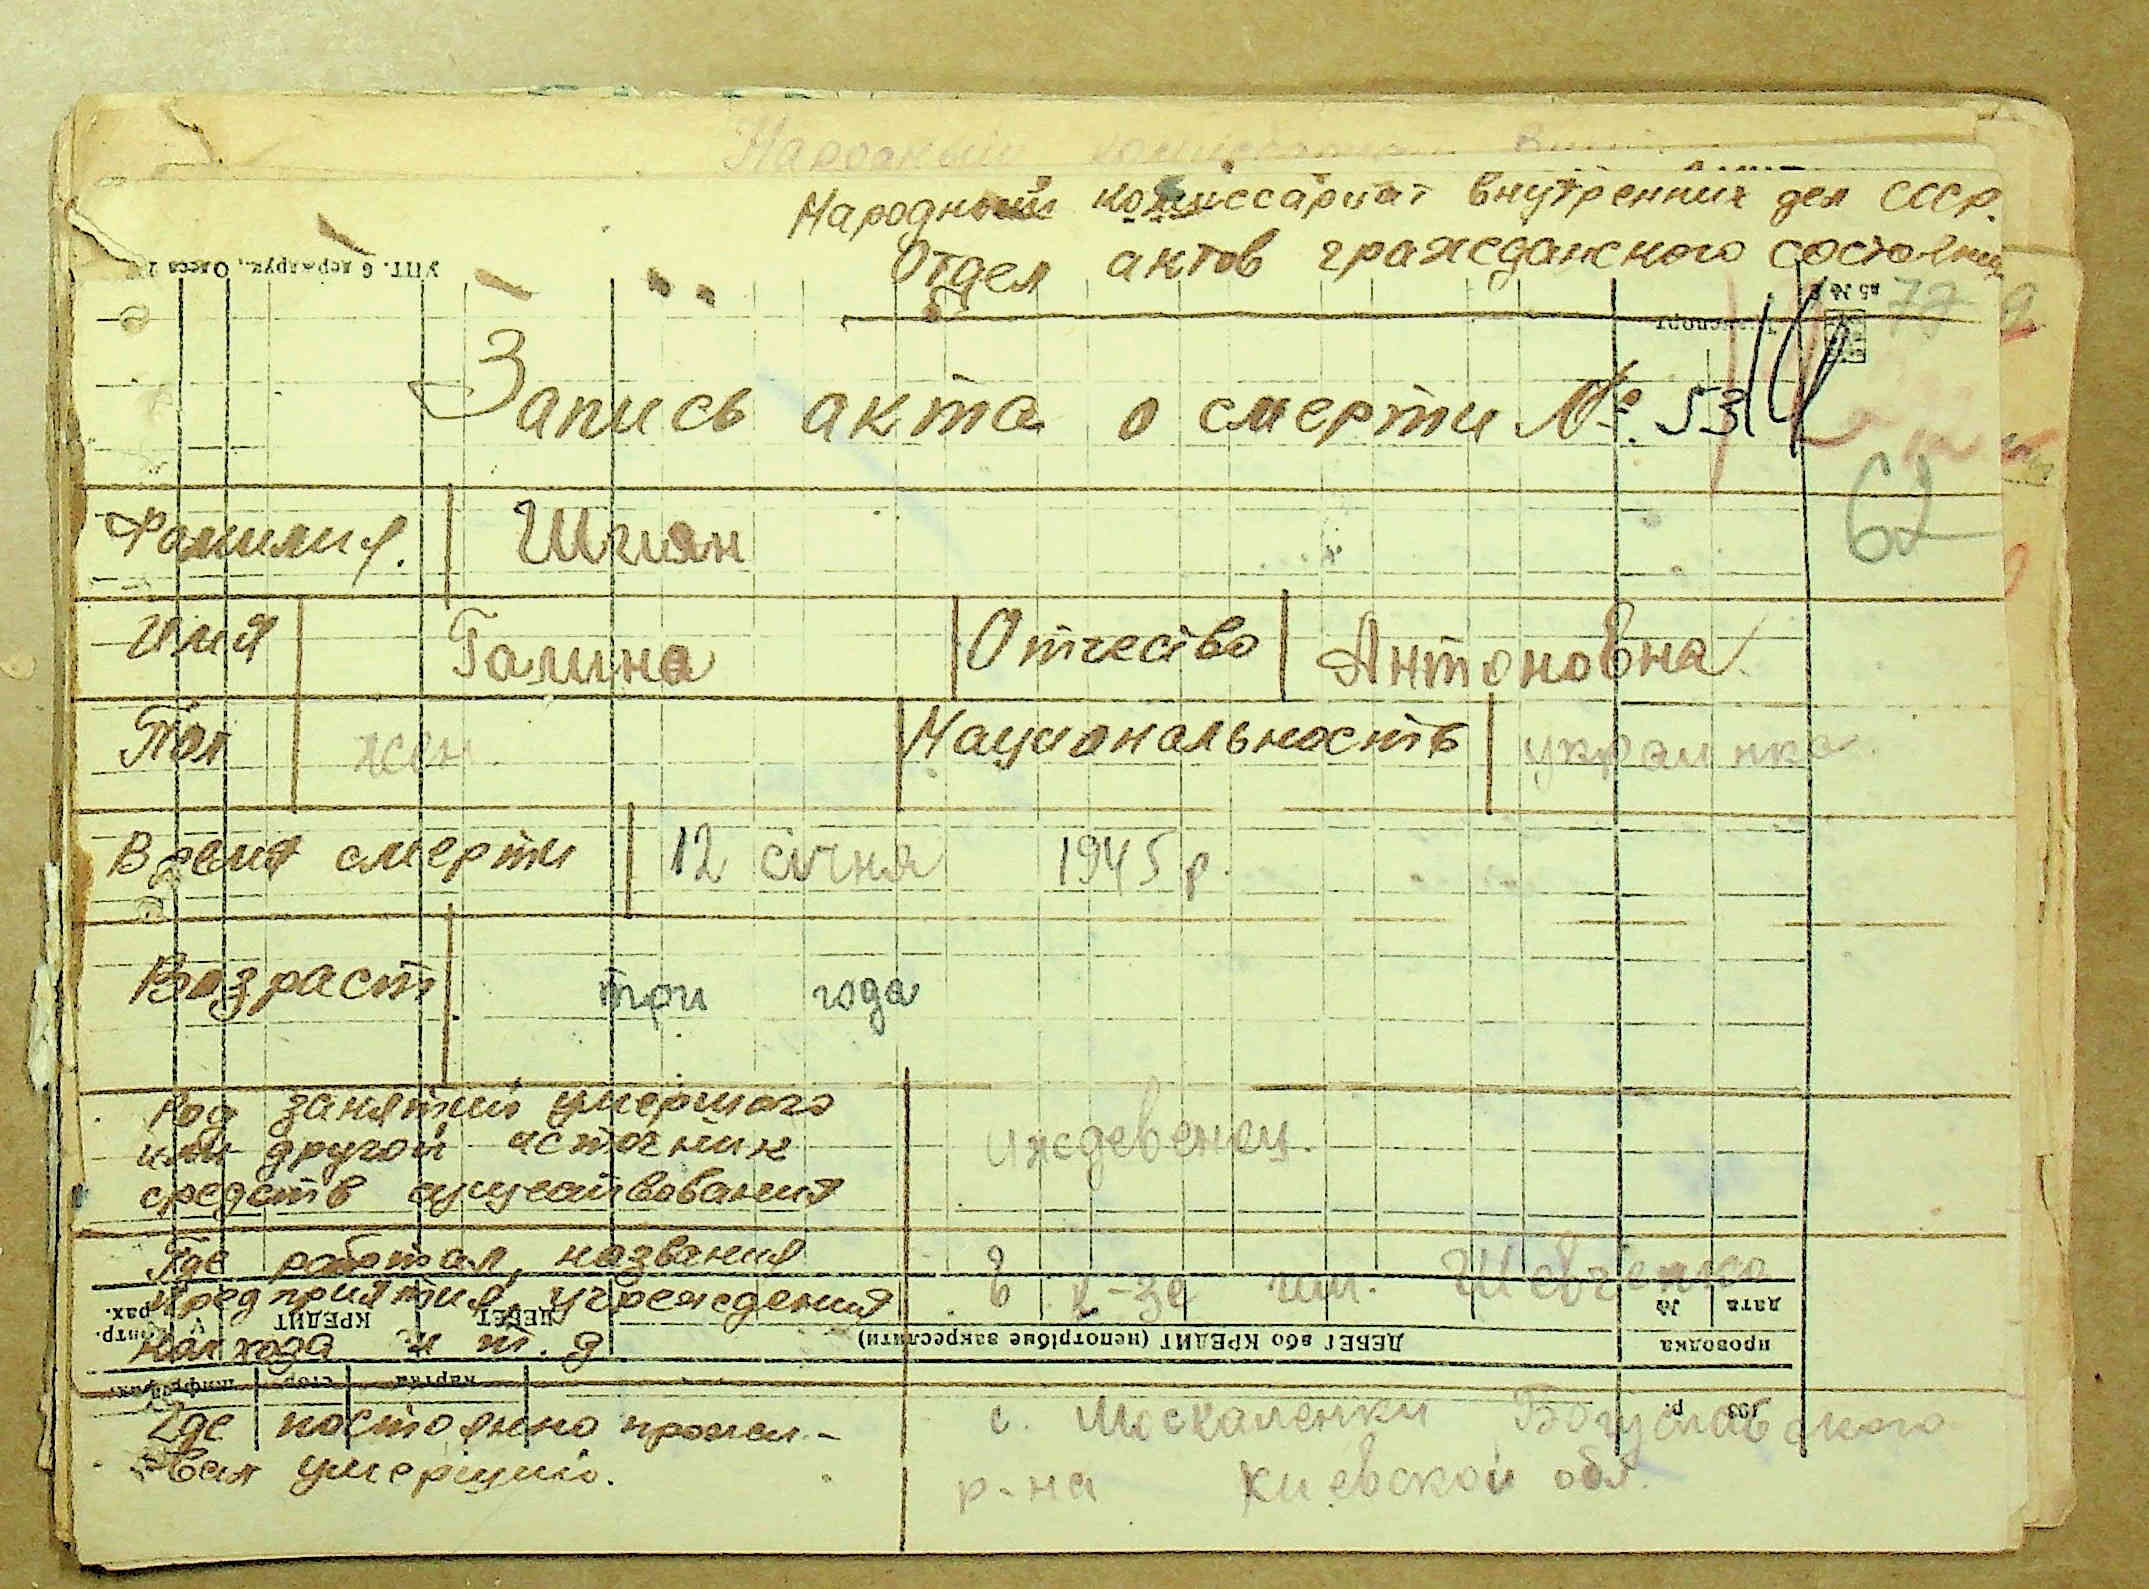 Народный комиссариат внутренних дел СССР.
Отдел актов гражданского состояния
УПТ. 6 держдрук., Одеса
77
Запись акта о смерти №. 53
62
Фамилия. Шиян
Имя Галина Отчество Антоновна
Пол жен Национальность украинка
Время смерти 12 січня 1945 р.
Возраст три года
Род занятий умершого
или другой источник
средств существования
иждевенец.
Где работал, названия
предприятия, учреждения
колхоза и т. д
в к-зе им. Шевченко
дата №
КРЕДИТ ДЕБЕТ
контр. рах.
ДЕБЕТ або КРЕДИТ (непотрібне закреслити)
проводка
шифр рах. стор картка
193 р.
Где постоянно прожи-
вал умерший.
с. Москаленки Богуславского
р-на Киевской обл.